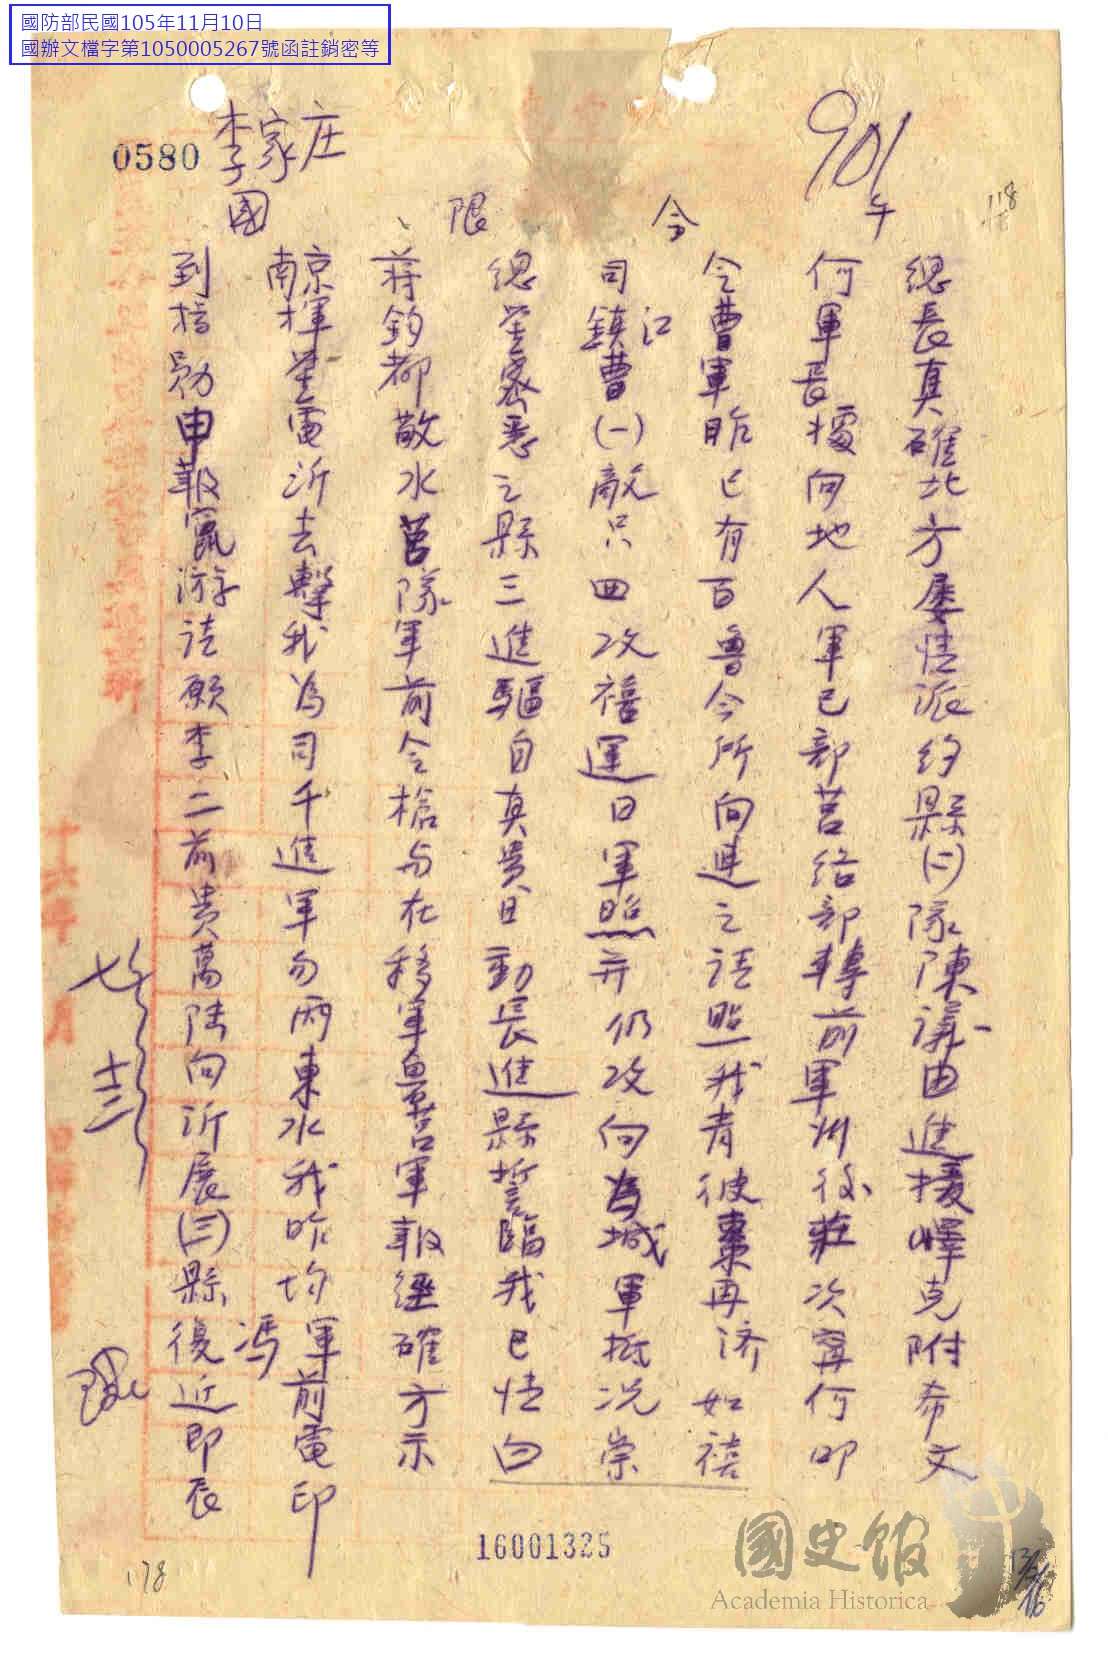 國防部民國105年11月10日
國辦文檔字第1050005267號函註銷密等
901
0580
李家庄
國限令午
到南京蔣總司令何總
指揮鈞座鎮江曹軍長
勛鑒都密曹軍長真
申電敬悉(一)昨據確
報沂水之敵已向北
竄去莒縣只有地方
游擊隊三四百人屢
請我軍進攻魯軍情
願為前驅禧今已派
李司令自運所部約
二千槍真日向莒縣
前進與貴軍連絡(二)
貴軍在日照之部隊
萬勿移動并請轉陳
陸兩軍長仍照前議
向東進攻我軍由
沂水莒縣向青州進
展我軍誓為彼後援
(三)昨報臨城棗莊嶧
縣均經我軍再次克
復馮軍確已抵济寧附
近前方情况如何希
即電示白崇禧叩文
辰印
16001325
178
國史館
Academia Historica